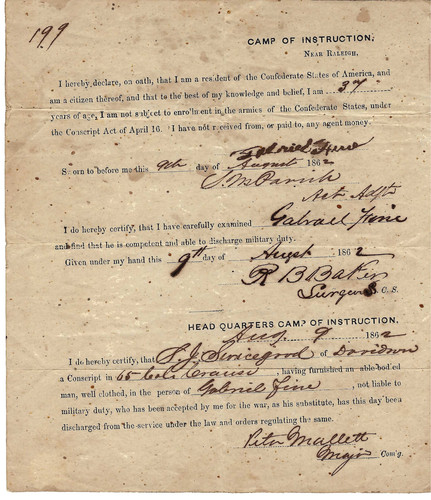 199
CAMP OF INSTRUCTION,
NEAR RALEIGH.
I hereby declare, on oath, that I am a resident of the Confederate States of America, and
am a citizen thereof, and that to the best of my knowledge and belief, I am 37
years of age, I am not subject to enrollment in the armies of the Confederate States, under
the Conscript Act of April 16. I have not received from, or paid to, any agent money.
Gabriel Fine
Sworn to before me this 9th day of August 1862
Parrish
Act Adjt
I do hereby certify, that I have carefully examined Gabriel Fine
and find that he is competent and able to discharge military duty.
Given under my hand this 9th day of Augst 1862
R B Baker
Surgeon C. S.
HEAD QUARTERS CAMP OF INSTRUCTION,
Aug 9 1862
I do hereby certify, that of Davidson
a Conscript in 65 having furnished an able bodied
man, well clothed, in the person of Gabriel Fine, not liable to
military duty, who has been accepted by me for the war, as substitute, has this day been
discharged from the service under the law and orders regulating the same.
Peter Mallett
Major Com'g.